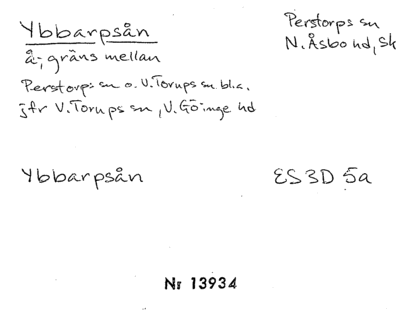 Ybbarpsån
Perstorps sn
N. Åsbo hd, Sk
å; gräns mellan
Perstorps sn o. V. Torups sn bl.a.
jfr V. Torups sn, V. Göinge hd
Ybbarpsån
ES 3D 5a
Nr 13934